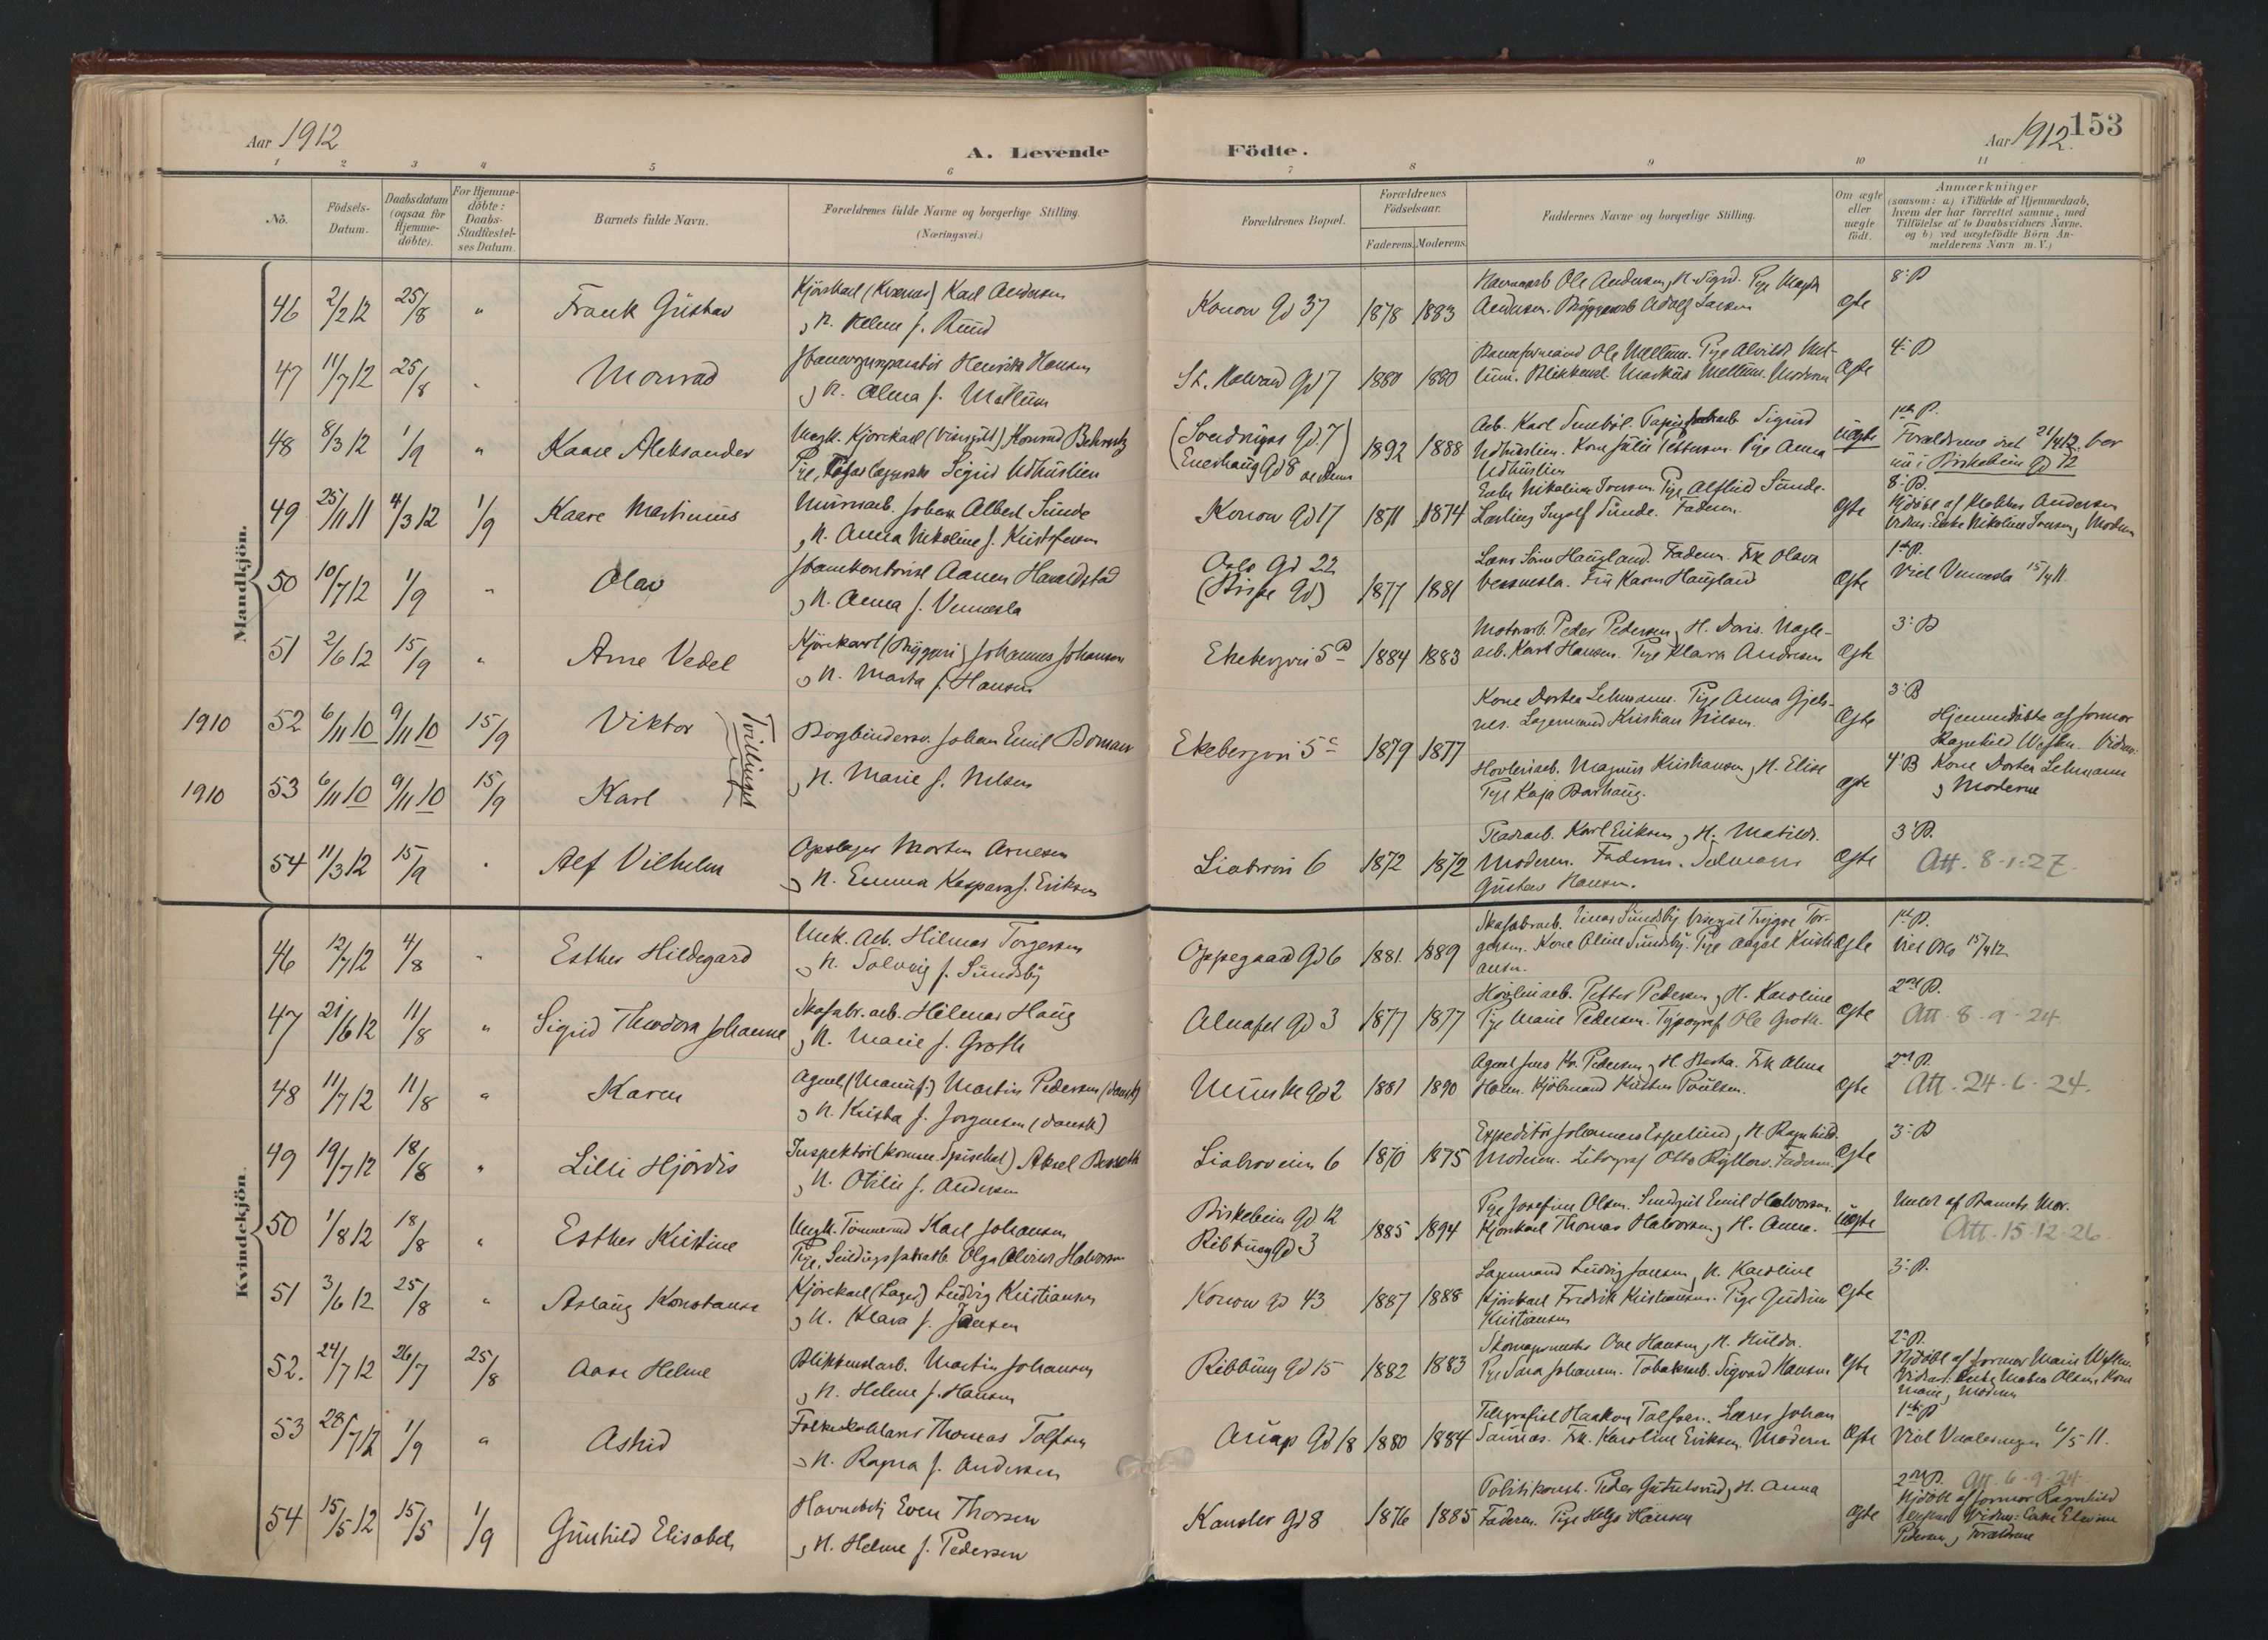 Aar 1912
A. Levende Födte.
Aar 1912. 153
1 2 3 4 5 6 7 8 9 10 11
No.
Födsels-Datum.
Daabsdatum (ogsaa for Hjemme-döbte).
For Hjemme-döbte: Daabs-Stadfæstel-ses Datum.
Barnets fulde Navn.
Forældrenes fulde Navne og borgerlige Stilling. (Næringsvei.)
Forældrenes Bopæl.
Forældrenes Födselsaar.
Faderens. Moderens.
Faddernes Navne og borgerlige Stilling.
Om ægte eller uægte födt.
Anmærkninger
(saasom: a) i Tilfælde af Hjemmedaab,
hvem der har forrettet samme, med
Tilföielse af to Daabsvidners Navne.
og b) ved uægtefödte Börn An-
melderens Navn m. V.)
Mandkjön.
46 2/2 12 25/8 " Frank Gustav
Kjörekarl Karl Andersen
Konow Gd 37 1878 1883
Ægte 8: B
47 11/7 12 25/8 " Monrad
Henrik Hansen
, H. Alma f. Mellum
St. Halvard Gd 7 1880 1880
Ole Mellum. Pige Alvilde Mel-
lum. Markus Mellum. Moderen
Ægte 4: B
48 8/3 12 1/9 " Kaare Aleksander
Ungk. Kjörekarl Konrad
Pige, Sigrid Udhuslien
Enerhaug Gd 8 1892 1888
Arb. Karl Sigurd
Udhuslien. Kone Julie Pettersen. Pige Anna
Udhuslien
uægte
Forældrene viet 21/4 12. bor
nu i Birkebein Gd 12
49 25/11 11 4/3 12 1/9 Kaare Martinius
Murerarb. Johan Albert Sunde
, H. Anna Nikoline f. Kristofersen
Konow Gd 17 1871 1874
Enke Nikoline Pige Alfhild Sunde.
Ingolf Sunde. Faderen.
Ægte 8: B.
Hjdöbt af Andersen
Vidner: Enke Nikoline Moderen
50 10/7 12 1/9 " Olav
Aanen Haraldstad
, H. Anna f. Vennesla
Oslo Gd 22
(Bispe Gd) 1877 1881
Haugland. Faderen. Frk Olava
Vennesla. Fru Karen Haugland
Ægte
Viet Vennesla 15/4 11.
51 2/6 12 15/9 " Arne Vedel
Kjörekarl (Bryggeri) Johannes Johansen
, H. Marta f. Hansen
Ekebergvei 5 B 1884 1883
Motorarb. Peder Pedersen, H. Doris. Nagle-
arb. Karl Hansen. Pige Klara Andresen
Ægte 3: B
1910 52 6/11 10 9/11 10 15/9 Viktor
Tvillinger
Bogbindersv. Johan Emil Boman
Ekebergvei 5 c 1879 1877
Kone Dortea Lehmann. Pige Anna Gjels-
nes. Lagermand Kristian Nilsen.
Ægte 3: B
Hjemmedöbte af jormor
Ragnhild Vidner:
1910 53 6/11 10 9/11 10 15/9 Karl
, H. Marie f. Nilsen
Hovleriarb. Magnus Kristiansen, H. Elise
Pige Kaja Barhaug.
Ægte 4: B Kone Dortea Lehmann
, Moderne
54 11/3 12 15/9 " Alf Vilhelm
Opslager Morten Arnesen
, H. Emma Kaspara f. Eriksen
Liabrovei 6 1872 1872
Karl Eriksen, H. Matilde.
Moderen. Faderen.
Gustav Hansen.
Ægte 3: B.
Att. 8-1-27.
Kvindekjön
46 12/7 12 4/8 " Esther Hildegard
Mek. Arb. Hilmar Torgersen
, H. Solveig f. Sundsby
Oppegaard Gd 6 1881. 1889
Skofabrarb. Einar Sundsby. Trygve Tor-
gersen. Kone Aline Sundsby. Pige Aagot Kristi-
ansen.
Ægte
Viet Oslo 15/4 12
47 21/6 12 11/8 " Sigrid Theodora Johanne
Skofabr. arb. Hilmar Haug
, H. Marie f. Groth
Alnafet Gd 3 1877 1877
Hövleriarb. Petter Pedersen, H. Karoline
Pige Marie Pedersen. Typograf Ole Groth.
Ægte
Att. 8-9-24
48 11/7 12 11/8 " Karen
Agent (Manuf.) Martin Pedersen (dansk)
, H. Krista f. Jorgensen (dansk)
Munke Gd 2 1881 1890
Agent Jens Pedersen, H. Frk Alma
Holm. Kjöbmand Poulsen.
Ægte
Att. 24-6-24.
49 19/7 12 18/8 " Lilli Hjördis
Inspektör Aksel
, H. Otilie f. Andersen
Liabroveien 6 1870 1875
Expeditör Johannes Espelund, H. Ragnhild.
Moderen. Litograf Otto Faderen.
Ægte 3: B
50 1/8 12 18/8 " Esther Kristine
Ungk. Tömmermd Karl Johansen
Pige, Olga Halvorsen
Birkebein Gd 12
Ribbung Gd 3 1885 1894
Pige Josefine Olsen. Emil Halvorsen.
Kjörekarl Thomas Halvorsen, H. Anna.
uægte
Meldt af Barnets Mor.
Att. 15-12-26.
51 3/6 12 25/8 " Aslaug Konstanse
Kjörekarl (Lager) Ludvig Kristiansen
, H. Klara f. Jansen
Konow Gd 43 1887 1888
Lagermand Ludvig Jansen, H. Karoline
Kjörekarl Fredrik Kristiansen. Pige Gudrun
Kristiansen
Ægte 3: B.
52. 24/7 12 26/7 25/8 Aase Helene
Blikkenslarb. Martin Johansen
, H. Helene f. Hansen
Ribbung Gd 15 1882 1883
Ove Hansen, H. Hulda.
Pige Sara Johansen. Tobakarb. Sigvard Hansen
Ægte
Hjdöbt af jormor Marie
Vidner: Enke Olsen, Kone
Marie, Moderen
53 28/7 12 1/9 " Astrid
Thomas Tolfsen
, H. Ragna f. Andersen
Arups Gd 18 1880 1884
Telegrafist Haakon Tolfsen. Johan
Frk. Karoline Eriksen. Moderen
Ægte
Viet Vaalerengen 6/5 11.
54 15/5 12 15/5 1/9 Gunhild Elisabeth
Havnebetj Even Thorsen
, H. Helene f. Pedersen
Kansler Gd 8 1876 1885
Politikonst. Peder H. Anna
Faderen. Pige Helga Hansen
Ægte
Att. 6-9-24
Hjdöbt af jormor Ragnhild
Vidner: Enke
Pedersen, Forældrene